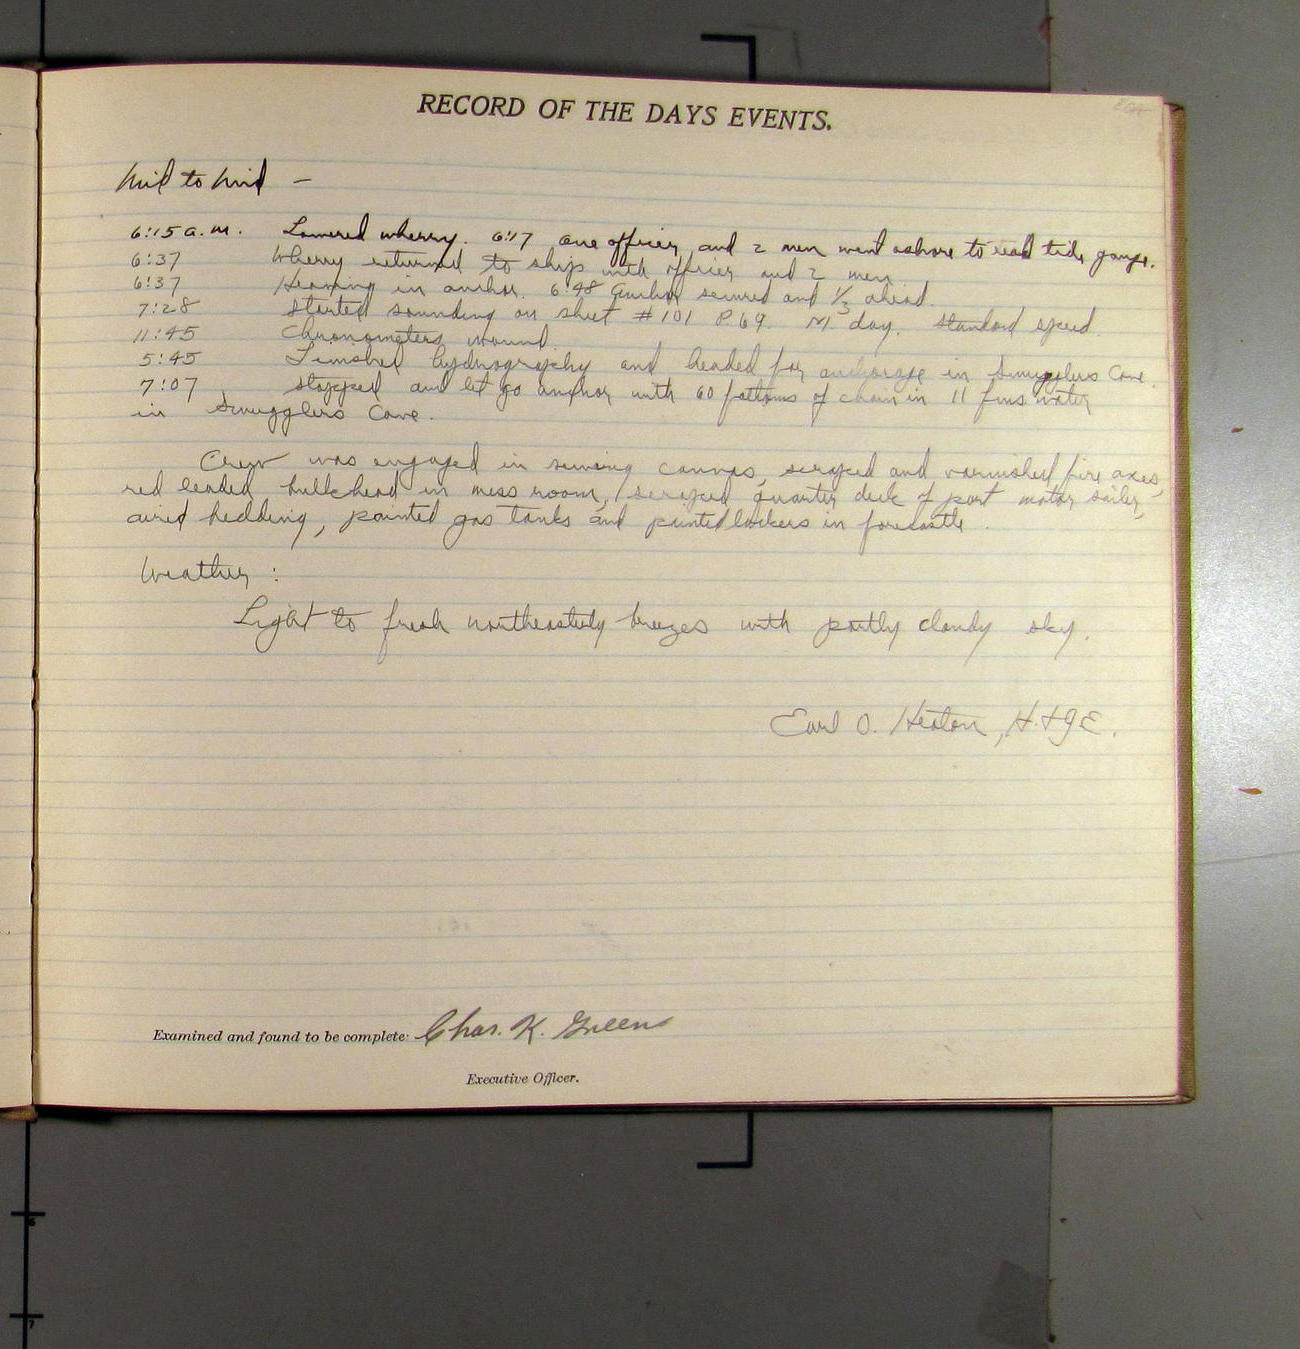 RECORD OF THE DAYS EVENTS.
Mid to Mid –
6:15 a.m. Lowered wherry. 6:17 one officer and 2 men went ashore to read tide gauge.
6:37 Wherry returned to ship with officer and 2 men
6:37 Heaving in anchor. 6:48 Anchor secured and 1/3 ahead.
7:28 Started sounding on sheet #101 P.69. M day. Standard speed.
11:45 Chronometers wound.
5:45 Finished hydrography and headed for anchorage in Smugglers Cove.
7:07 stopped and let go anchor with 60 fathoms of chain in 11 fms water
in Smugglers Cove.
Crew was engaged in sewing canvas, scraped and varnished fire axes,
red leaded bulkhead in mess room, scraped quarter deck of port motor sailer,
aired bedding, painted gas tanks and painted lockers in forecastle.
Weather :
Light to fresh northeasterly breezes with partly cloudy sky.
Earl O. Heaton, H.& G.E.
Examined and found to be complete: Chas. K. Green
Executive Officer.
6
7